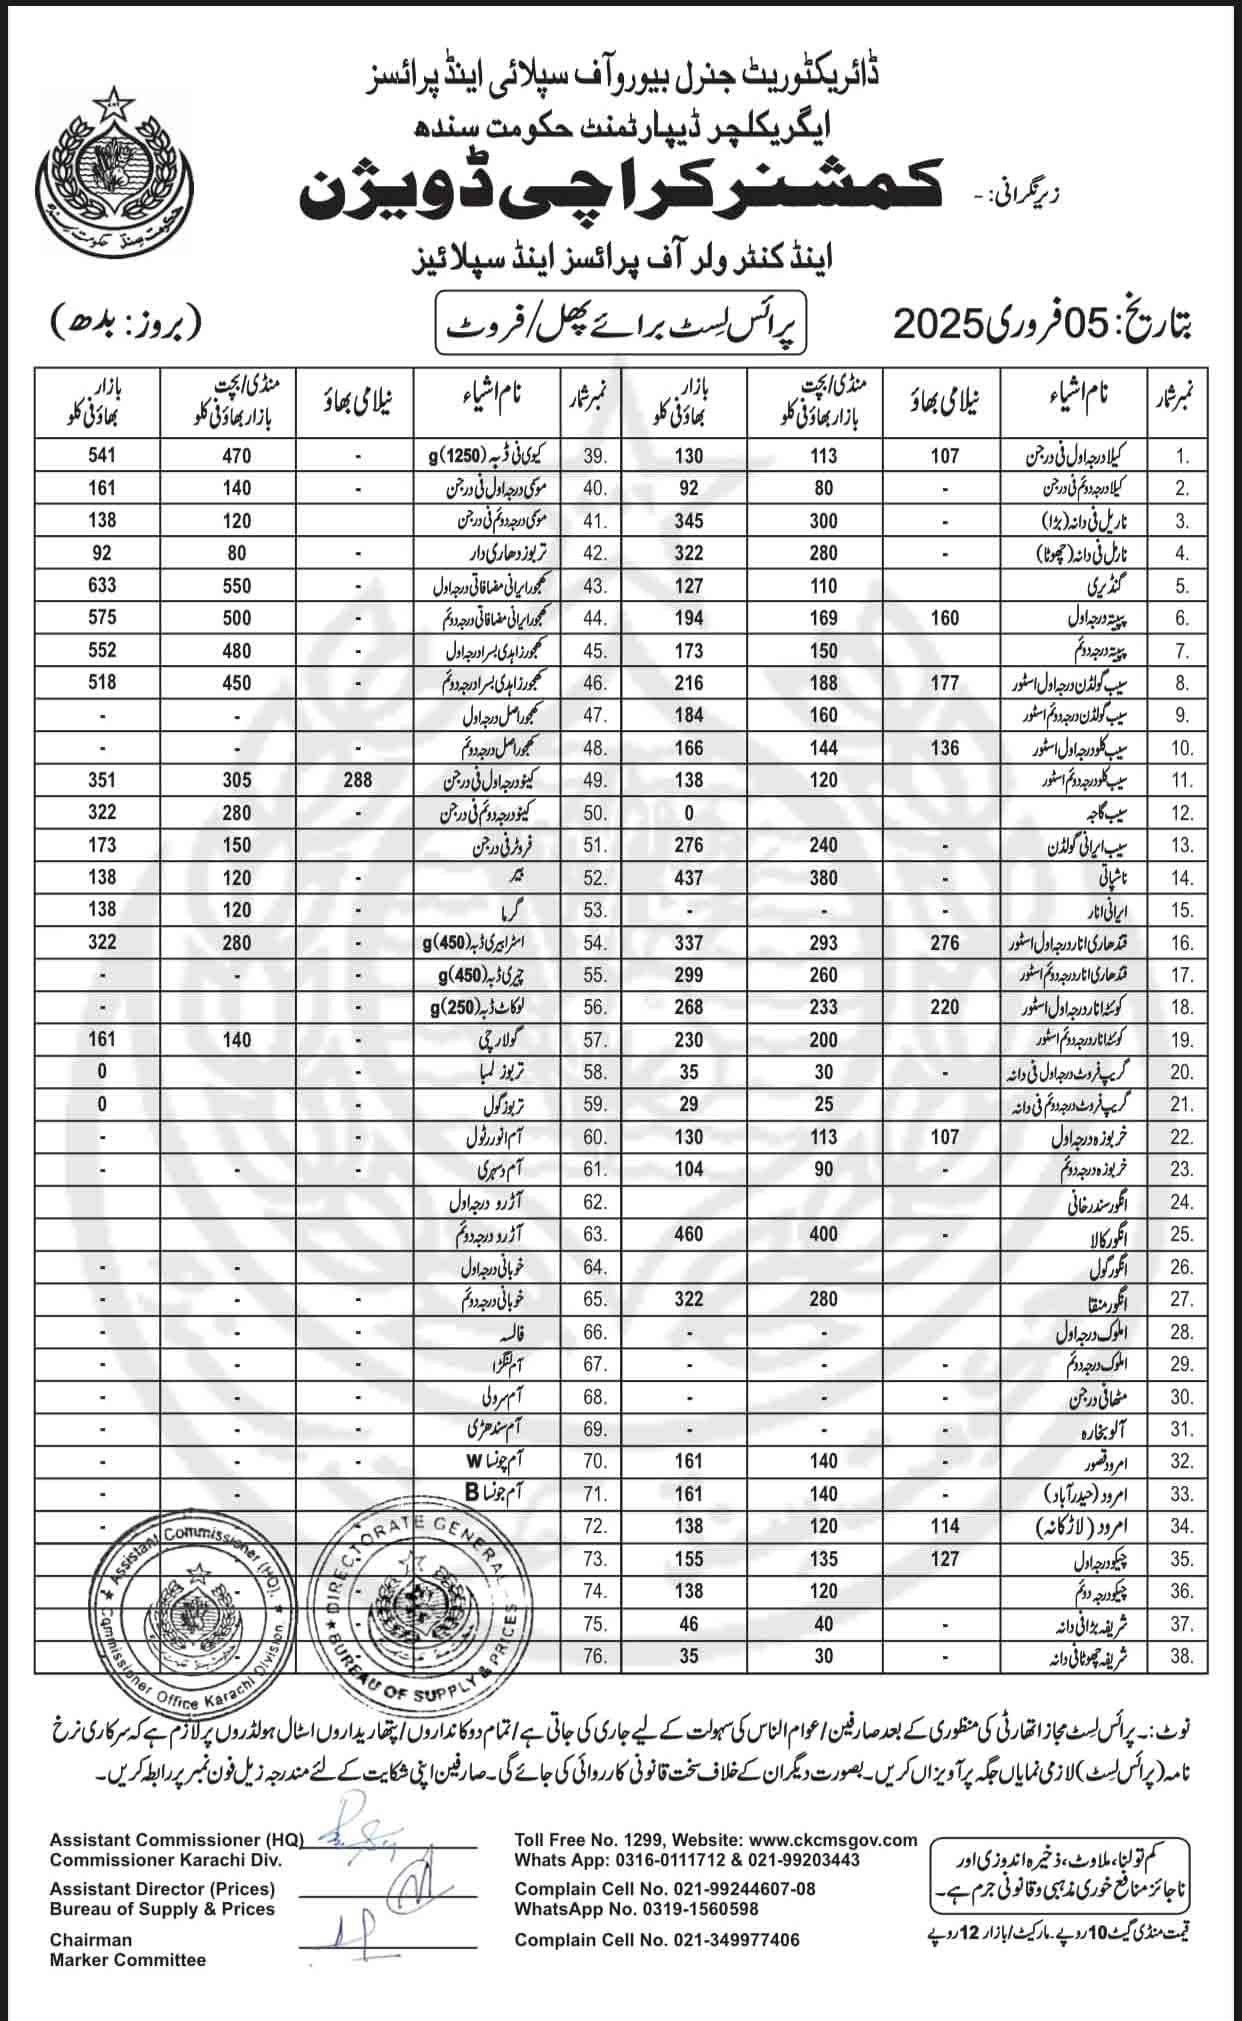 ڈائریکٹوریٹ جنرل بیورو آف سپلائی اینڈ پرائسز
ایگریکلچر ڈیپارٹمنٹ حکومت سندھ
زیر نگرانی:- کمشنر کراچی ڈویژن
اینڈ کنٹرولر آف پرائسز اینڈ سپلائیز
بتاریخ: 05 فروری 2025 پرائس لسٹ برائے پھل/فروٹ (بروز: بدھ)
نمبر شمار نام اشیاء نیلامی بھاؤ منڈی/بچت بازار بھاؤ فی کلو بازار بھاؤ فی کلو نمبر شمار نام اشیاء نیلامی بھاؤ منڈی/بچت بازار بھاؤ فی کلو بازار بھاؤ فی کلو
1. کیلا درجہ اول فی درجن 107 113 130 39. کیوی فی ڈبہ (1250)g - 470 541
2. کیلا درجہ دوئم فی درجن - 80 92 40. موسمی درجہ اول فی درجن - 140 161
3. ناریل فی دانہ (بڑا) - 300 345 41. موسمی درجہ دوئم فی درجن - 120 138
4. ناریل فی دانہ (چھوٹا) - 280 322 42. تربوز دھاری دار - 80 92
5. گنڈیری 110 127 43. کھجور ایرانی مضافاتی درجہ اول - 550 633
6. پپیتہ درجہ اول 160 169 194 44. کھجور ایرانی مضافاتی درجہ دوئم - 500 575
7. پپیتہ درجہ دوئم 150 173 45. کھجور زاہدی بسرا درجہ اول - 480 552
8. سیب گولڈن درجہ اول اسٹور 177 188 216 46. کھجور زاہدی بسرا درجہ دوئم - 450 518
9. سیب گولڈن درجہ دوئم اسٹور 160 184 47. کھجور اصل درجہ اول - - -
10. سیب کلو درجہ اول اسٹور 136 144 166 48. کھجور اصل درجہ دوئم - - -
11. سیب کلو درجہ دوئم اسٹور 120 138 49. کینو درجہ اول فی درجن 288 305 351
12. سیب گاجہ 0 50. کینو درجہ دوئم فی درجن - 280 322
13. سیب ایرانی گولڈن - 240 276 51. فروٹر فی درجن - 150 173
14. ناشپاتی - 380 437 52. بیر - 120 138
15. ایرانی انار - - - 53. گرما - 120 138
16. قندھاری انار درجہ اول اسٹور 276 293 337 54. اسٹرابیری ڈبہ (450)g - 280 322
17. قندھاری انار درجہ دوئم اسٹور 260 299 55. چیری ڈبہ (450)g - - -
18. کوئٹہ انار درجہ اول اسٹور 220 233 268 56. لوکاٹ ڈبہ (250)g - -
19. کوئٹہ انار درجہ دوئم اسٹور 200 230 57. گولارچی - 140 161
20. گریپ فروٹ درجہ اول فی دانہ - 30 35 58. تربوز لمبا - 0
21. گریپ فروٹ درجہ دوئم فی دانہ - 25 29 59. تربوز گول - 0
22. خربوزہ درجہ اول 107 113 130 60. آم انور رٹول - -
23. خربوزہ درجہ دوئم - 90 104 61. آم دسہری - - -
24. انگور سندرخانی 62. آڑو درجہ اول
25. انگور کالا - 400 460 63. آڑو درجہ دوئم
26. انگور گول 64. خوبانی درجہ اول - -
27. انگور منقا 280 322 65. خوبانی درجہ دوئم - - -
28. املوک درجہ اول - - 66. فالسہ - - -
29. املوک درجہ دوئم - - - 67. آم لنگڑا - - -
30. مٹھائی درجن - - - 68. آم سرولی - - -
31. آلو بخارہ - - - 69. آم سندھڑی - - -
32. امرود قصور 140 161 70. آم چونسا W - - -
33. امرود (حیدرآباد) - 140 161 71. آم چونسا B - -
34. امرود (لاڑکانہ) 114 120 138 72. -
35. چیکو درجہ اول 127 135 155 73.
36. چیکو درجہ دوئم 120 138 74.
37. شریفہ بڑا فی دانہ - 40 46 75.
38. شریفہ چھوٹا فی دانہ - 30 35 76.
Assistant Commissioner (HQ), Commissioner Office Karachi Division
DIRECTORATE GENERAL BUREAU OF SUPPLY & PRICES
نوٹ:۔ پرائس لسٹ مجاز اتھارٹی کی منظوری کے بعد صارفین/عوام الناس کی سہولت کے لیے جاری کی جاتی ہے/تمام دوکانداروں/پتھاریداروں اسٹال ہولڈروں پر لازم ہے کہ سرکاری نرخ
نامہ (پرائس لسٹ) لازمی نمایاں جگہ پر آویزاں کریں۔ بصورت دیگر ان کے خلاف سخت قانونی کارروائی کی جائے گی۔ صارفین اپنی شکایت کے لئے مندرجہ زیل فون نمبر پر رابطہ کریں۔
Assistant Commissioner (HQ)
Commissioner Karachi Div.
Assistant Director (Prices)
Bureau of Supply & Prices
Chairman
Marker Committee
Toll Free No. 1299, Website: www.ckcmsgov.com
Whats App: 0316-0111712 & 021-99203443
Complain Cell No. 021-99244607-08
WhatsApp No. 0319-1560598
Complain Cell No. 021-349977406
کم تولنا، ملاوٹ، ذخیرہ اندوزی اور
ناجائز منافع خوری مذہبی و قانونی جرم ہے۔
قیمت منڈی گیٹ 10 روپے۔ مارکیٹ/بازار 12 روپے